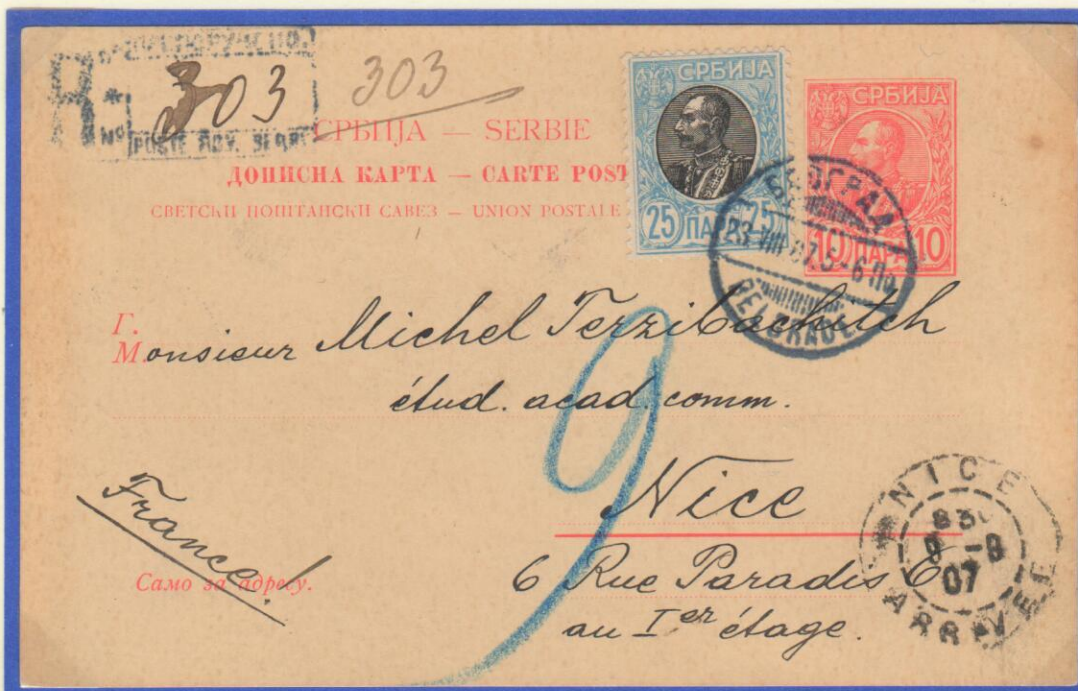 303
303
POSTE
СРБИЈА — SERBIE
ДОПИСНА КАРТА — CARTE POST
СВЕТСКИ ПОШТАНСКИ САВЕЗ — UNION POSTALE
СРБИЈА
25 ПАРА 25
СРБИЈА
10 ПАРА 10
БЕОГРАД
BELGRADE
Г.
Monsieur Michel Terzibachitch
étud. acad. comm.
9
Nice
France!
Само за адресу.
6 Rue Paradis 6
au Ier étage.
NICE
07
ARRIVEE